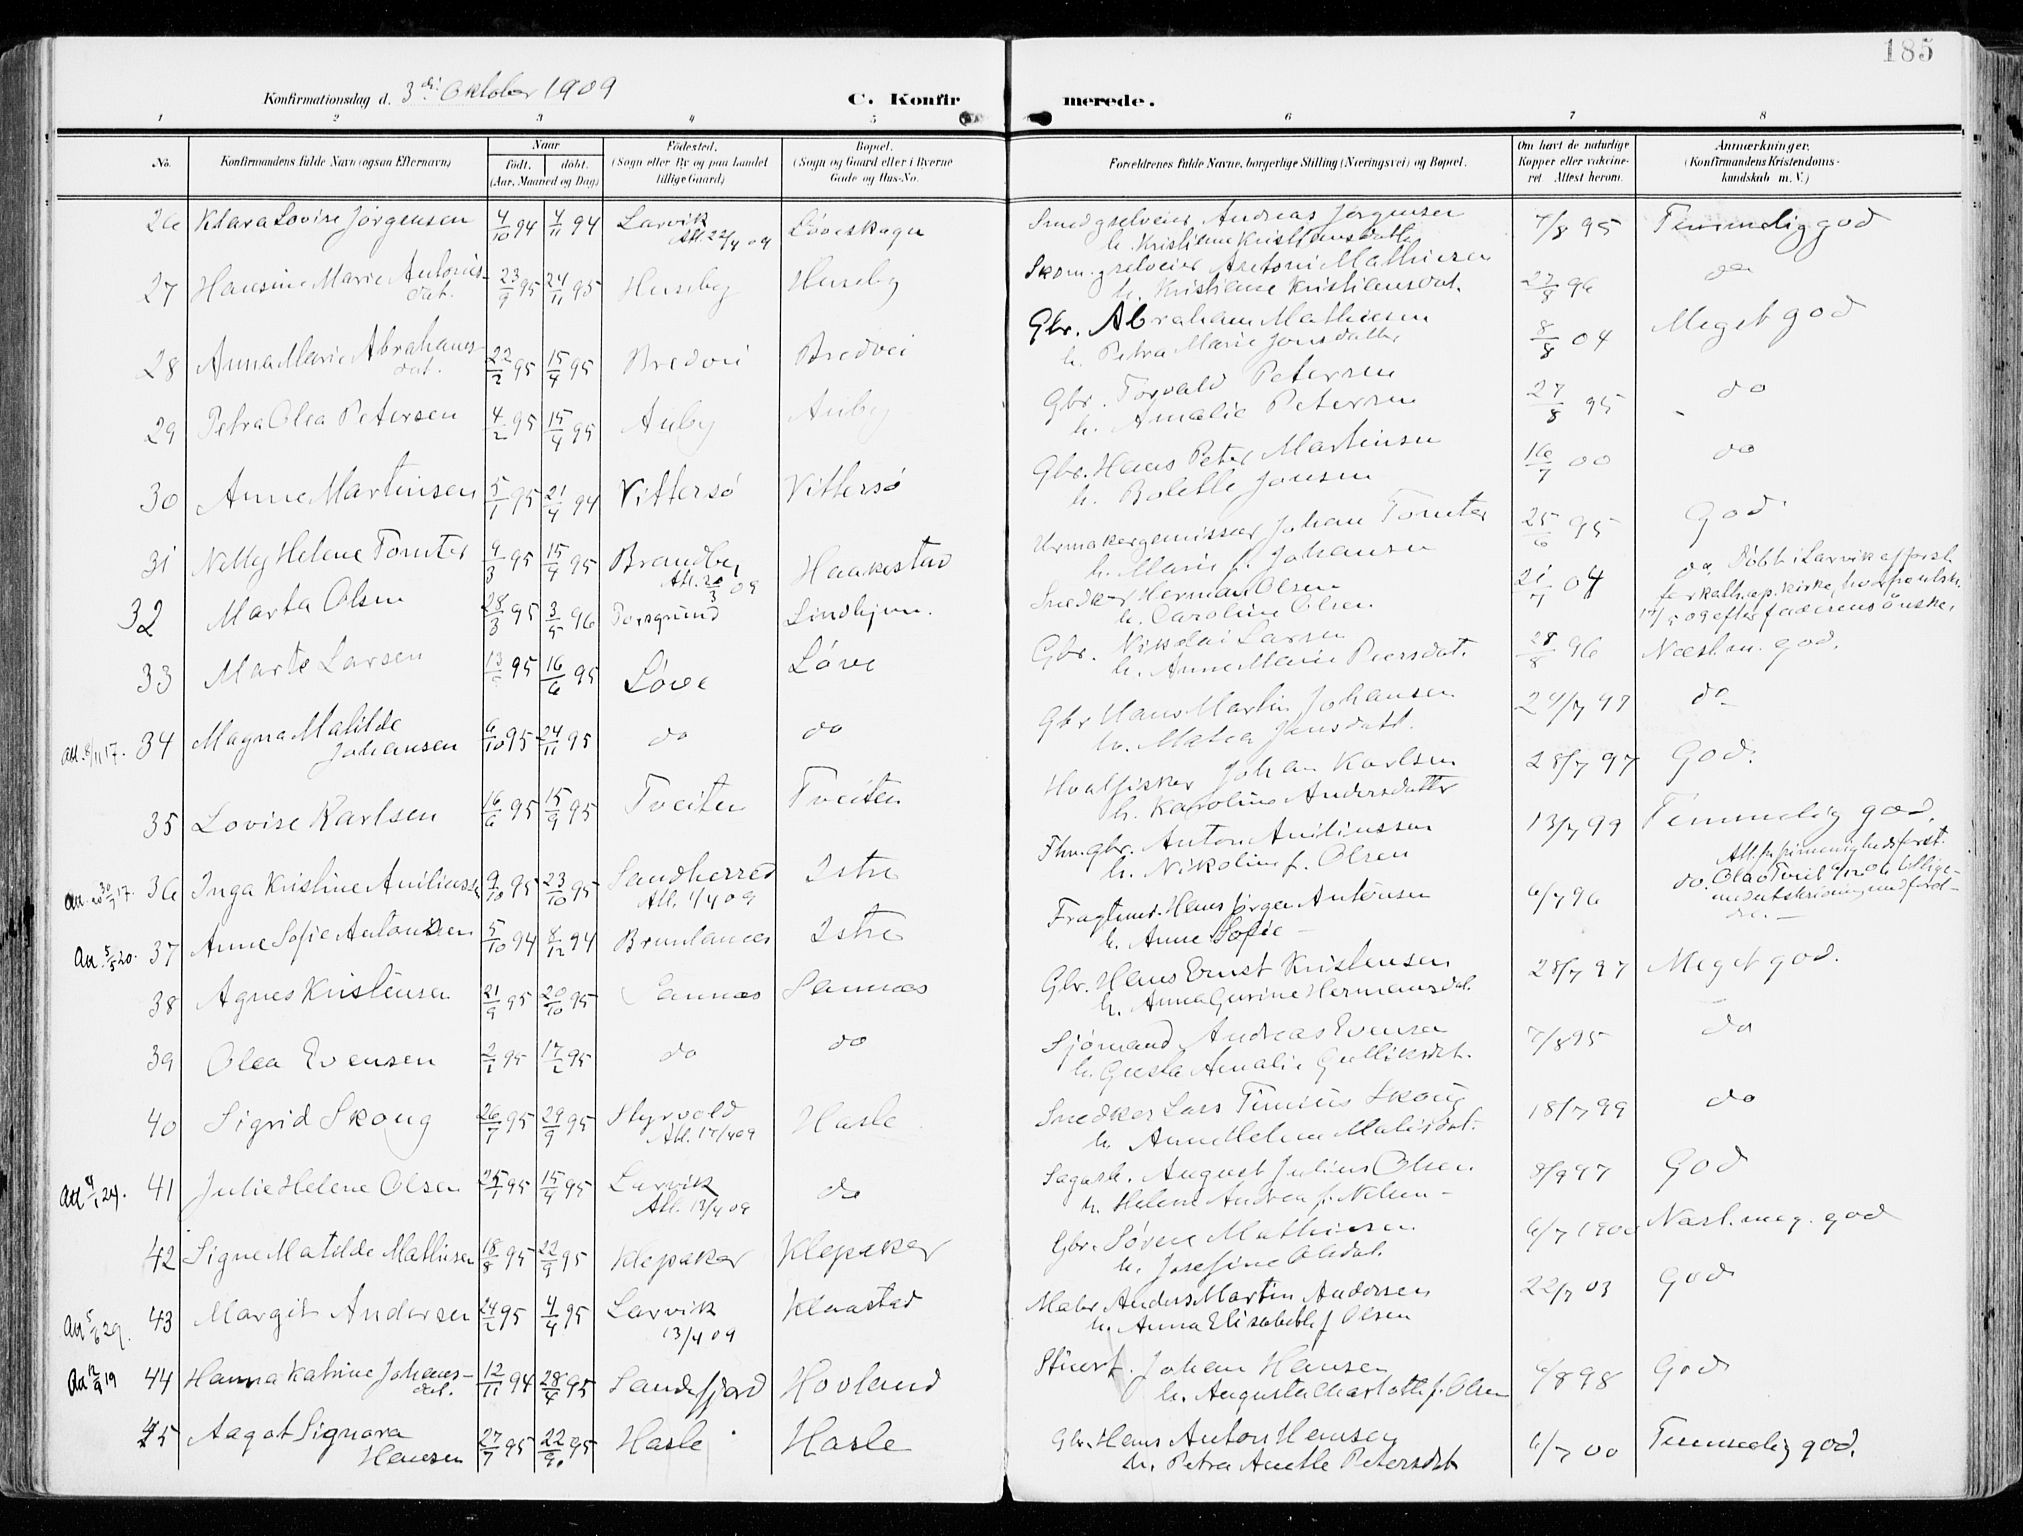 185
Konfirmationsdag d. 3di Oktober 1909
C. Konfirmerede.
1 2 3 4 5 6 7 8
No. Konfirmandens fulde Navn (ogsaa Efternavn) Naar født. døbt. (Aar, Maaned og Dag) Fødested. (Sogn eller By og paa Landet tillige Gaard) Bopæl. (Sogn og Gaard eller i Byerne Gade og Hus-No. Forældrenes fulde Navne, borgerlige Stilling (Næringsvei) og Bopæl. Om havt de naturlige Kopper eller vakcineret Attest herom. Anmærkninger. (Konfirmandens Kristendomskundskab m. V.)
26 Klara Lovise Jørgensen 4/10 94 4/11 94 Larvik Løveskogen Andreas Jørgensen 7/8 95 Temmelig god
Att. 22/4 09 h. Kristiane Kristiansdatter
27 Hansine Marie Antonisdat. 23/9 95 24/11 95 Huseby Huseby Skom. gselveier Antoni Mathisen 27/8 96 do
h. Kristiane Kristiansdat.
28 Anna Marie Abrahamsdat. 22/2 95 15/4 95 Bredvei Bredvei Gbr. Abraham Mathisen 8/8 04 Meget god
h. Petra Marie Jonsdatter
29 Petra Olea Petersen 4/2 95 15/4 95 Auby Auby Gbr. Torvald Petersen 27/8 95 do
h. Amalie Petersen
30 Anne Martinsen 5/1 95 21/4 94 Vittersø Vittersø Gbr. Hans Peter Martinsen 16/7 00 do
h. Bolette Jonsen
31 Nelly Helene Tomter 9/3 95 15/4 95 Brandbu Haakestad Urmakergemisser Johan Tomter 25/6 95 God
Att. 20/3 09 h. Marie f. Johansen
32 Marta Olsen 28/3 95 3/5 96 Porsgrund Lindhjem. Snedker Herman Olsen 21/7 04 do Døbt i Larvik
h. Caroline Olsen kath. ap. kirke,
og efter faderens ønske.
33 Marte Larsen 95 16/6 95 Løve Løve Gbr. Nikolai Larsen 28/8 96 Næst m. god.
h. Anne Marie Peersdat.
att. 8/11 17. 34 Magna Matilde Johansen 6/10 95 24/11 95 do do Gbr Hans Martin Johansen do
h. Jensdatt.
35 Lovise Karlsen 16/6 95 15/9 95 Tveiten Tveiten Hvalfisker Johan Karlsen 28/7 97 God.
h. Karoline Andersdatter
36 Inga Kristine 9/10 95 23/10 95 Sandherred Istre Anton 13/7 99 Temmelig god.
Att. 1/4 09 h. Nikoline f. Olsen
Att. 5/5 20. 37 Anne Sofie Antonsen 5/10 94 8/12 94 Brunlanæs Istre Fragtmd. Hans Jørgen Antonsen 6/7 96 do.
h. Anne Sofie –
38 Agnes Kristensen 21/9 95 20/10 95 Sannæs Sannæs Gbr. Hans Ernst Kristensen 28/7 97 Meget god.
h. Anna Gurine Hermansdat.
39 Olea Evensen 2/1 95 17/2 95 do do Sjømand Andreas Evensen 7/8 95 do
h. Amalie Gulliksdat.
40 Sigrid Skoug 26/7 95 29/9 95 Styrvold Hasle Snedker Lars Tinius Skoug 18/7 99 do
Att. 17/4 09 h. Anne Helene
41 Julie Helene Olsen 95 15/9 95 Larvik do August Julius Olsen 8/9 97 God
Att. 13/4 09 h. Helene Andrea f. Nelsen –
42 Signe Matilde Mathisen 18/8 95 22/9 95 Klepaker Klepaker Gbr. Søren Mathisen 6/7 1900 Næst. meg. god
h. Josefine Olsdat.
43 Margit Andersen 24/2 95 4/4 95 Larvik Klaastad Maler Anders Martin Andersen 22/7 03 God
13/4 09 h. Anna Elisabeth f Olsen
Att 12/9 19 44 Hanna Katrine Johansdat. 12/11 94 28/4 95 Sandefjord Hovland Stuert. Johan Hansen 4/8 98 God
h. Augusta Charlotte f. Olsen
45 Aagot Signora Hansen 27/7 95 22/9 95 Hasle Hasle Gbr. Hans Anton Hansen 6/7 00 Temmelig god.
h. Petra Anette Petersdat